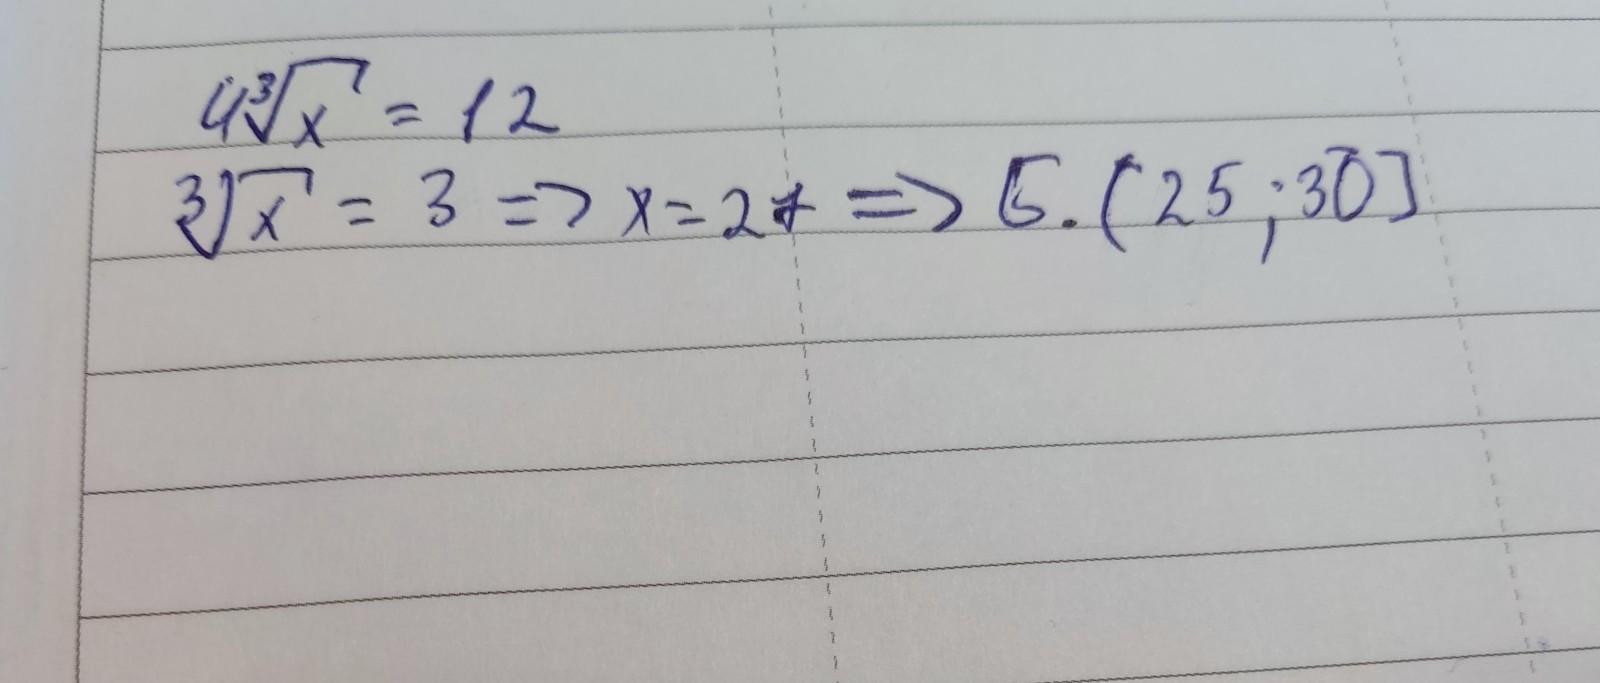 4∛x = 12
∛x = 3 => x = 27 => Б. (25; 30]